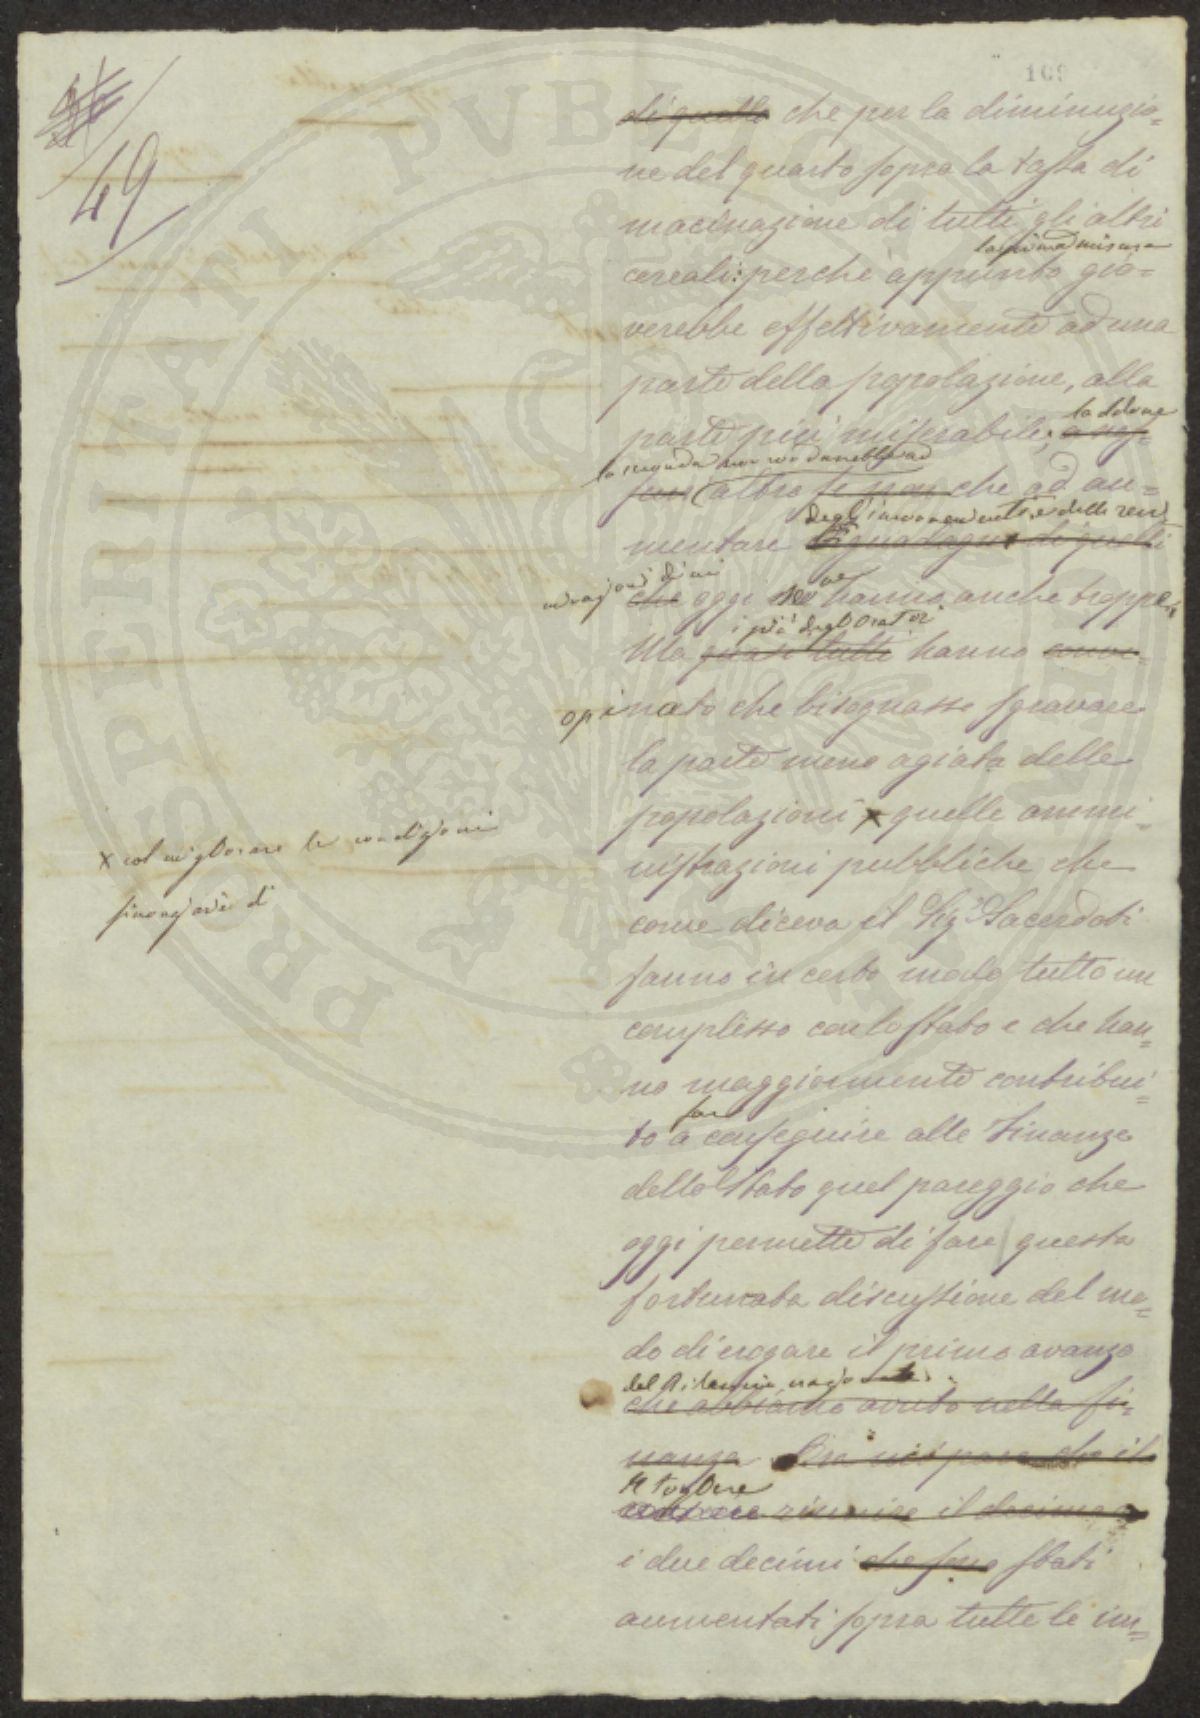 109
49
~~di quello~~ che per la diminuzio=
ne del quarto sopra la tassa di
macinazione di tutti gli altri
la prima misura
cereali: perché appunto gio=
verebbe effettivamente ad una
parte della popolazione, alla
parte più miserabile;
la seconda non ad
altro ~~se non~~ che ad au=
degl'inconvenienti e delle
mentare ~~i guadagni di quelli~~
~~che~~ oggi hanno anche troppe
i più degli Oratori
Ma ~~quasi tutti~~ hanno
opinato che bisognasse sgravare
la parte meno agiata delle
popolazioni x quelle ammi-
nistrazioni pubbliche che
come diceva il Sigr Sacerdoti
fanno in certo modo tutto un
complesso con lo stato e che han=
no maggiormente contribui=
far
to a conseguire alle Finanze
dello Stato quel pareggio che
oggi permette di fare questa
fortunata discussione del mo=
do di erogare il primo avanzo
del Bilancio nazionale.
~~che abbiamo avuto nella fi=~~
~~nanza. Ora mi pare che il~~
Il togliere
~~riunire il decimo~~
i due decimi ~~che sono~~ stati
aumentati sopra tutte le im=
x col migliorare le condizioni
finanziarie di
PROSPERITATI PVBLICAE